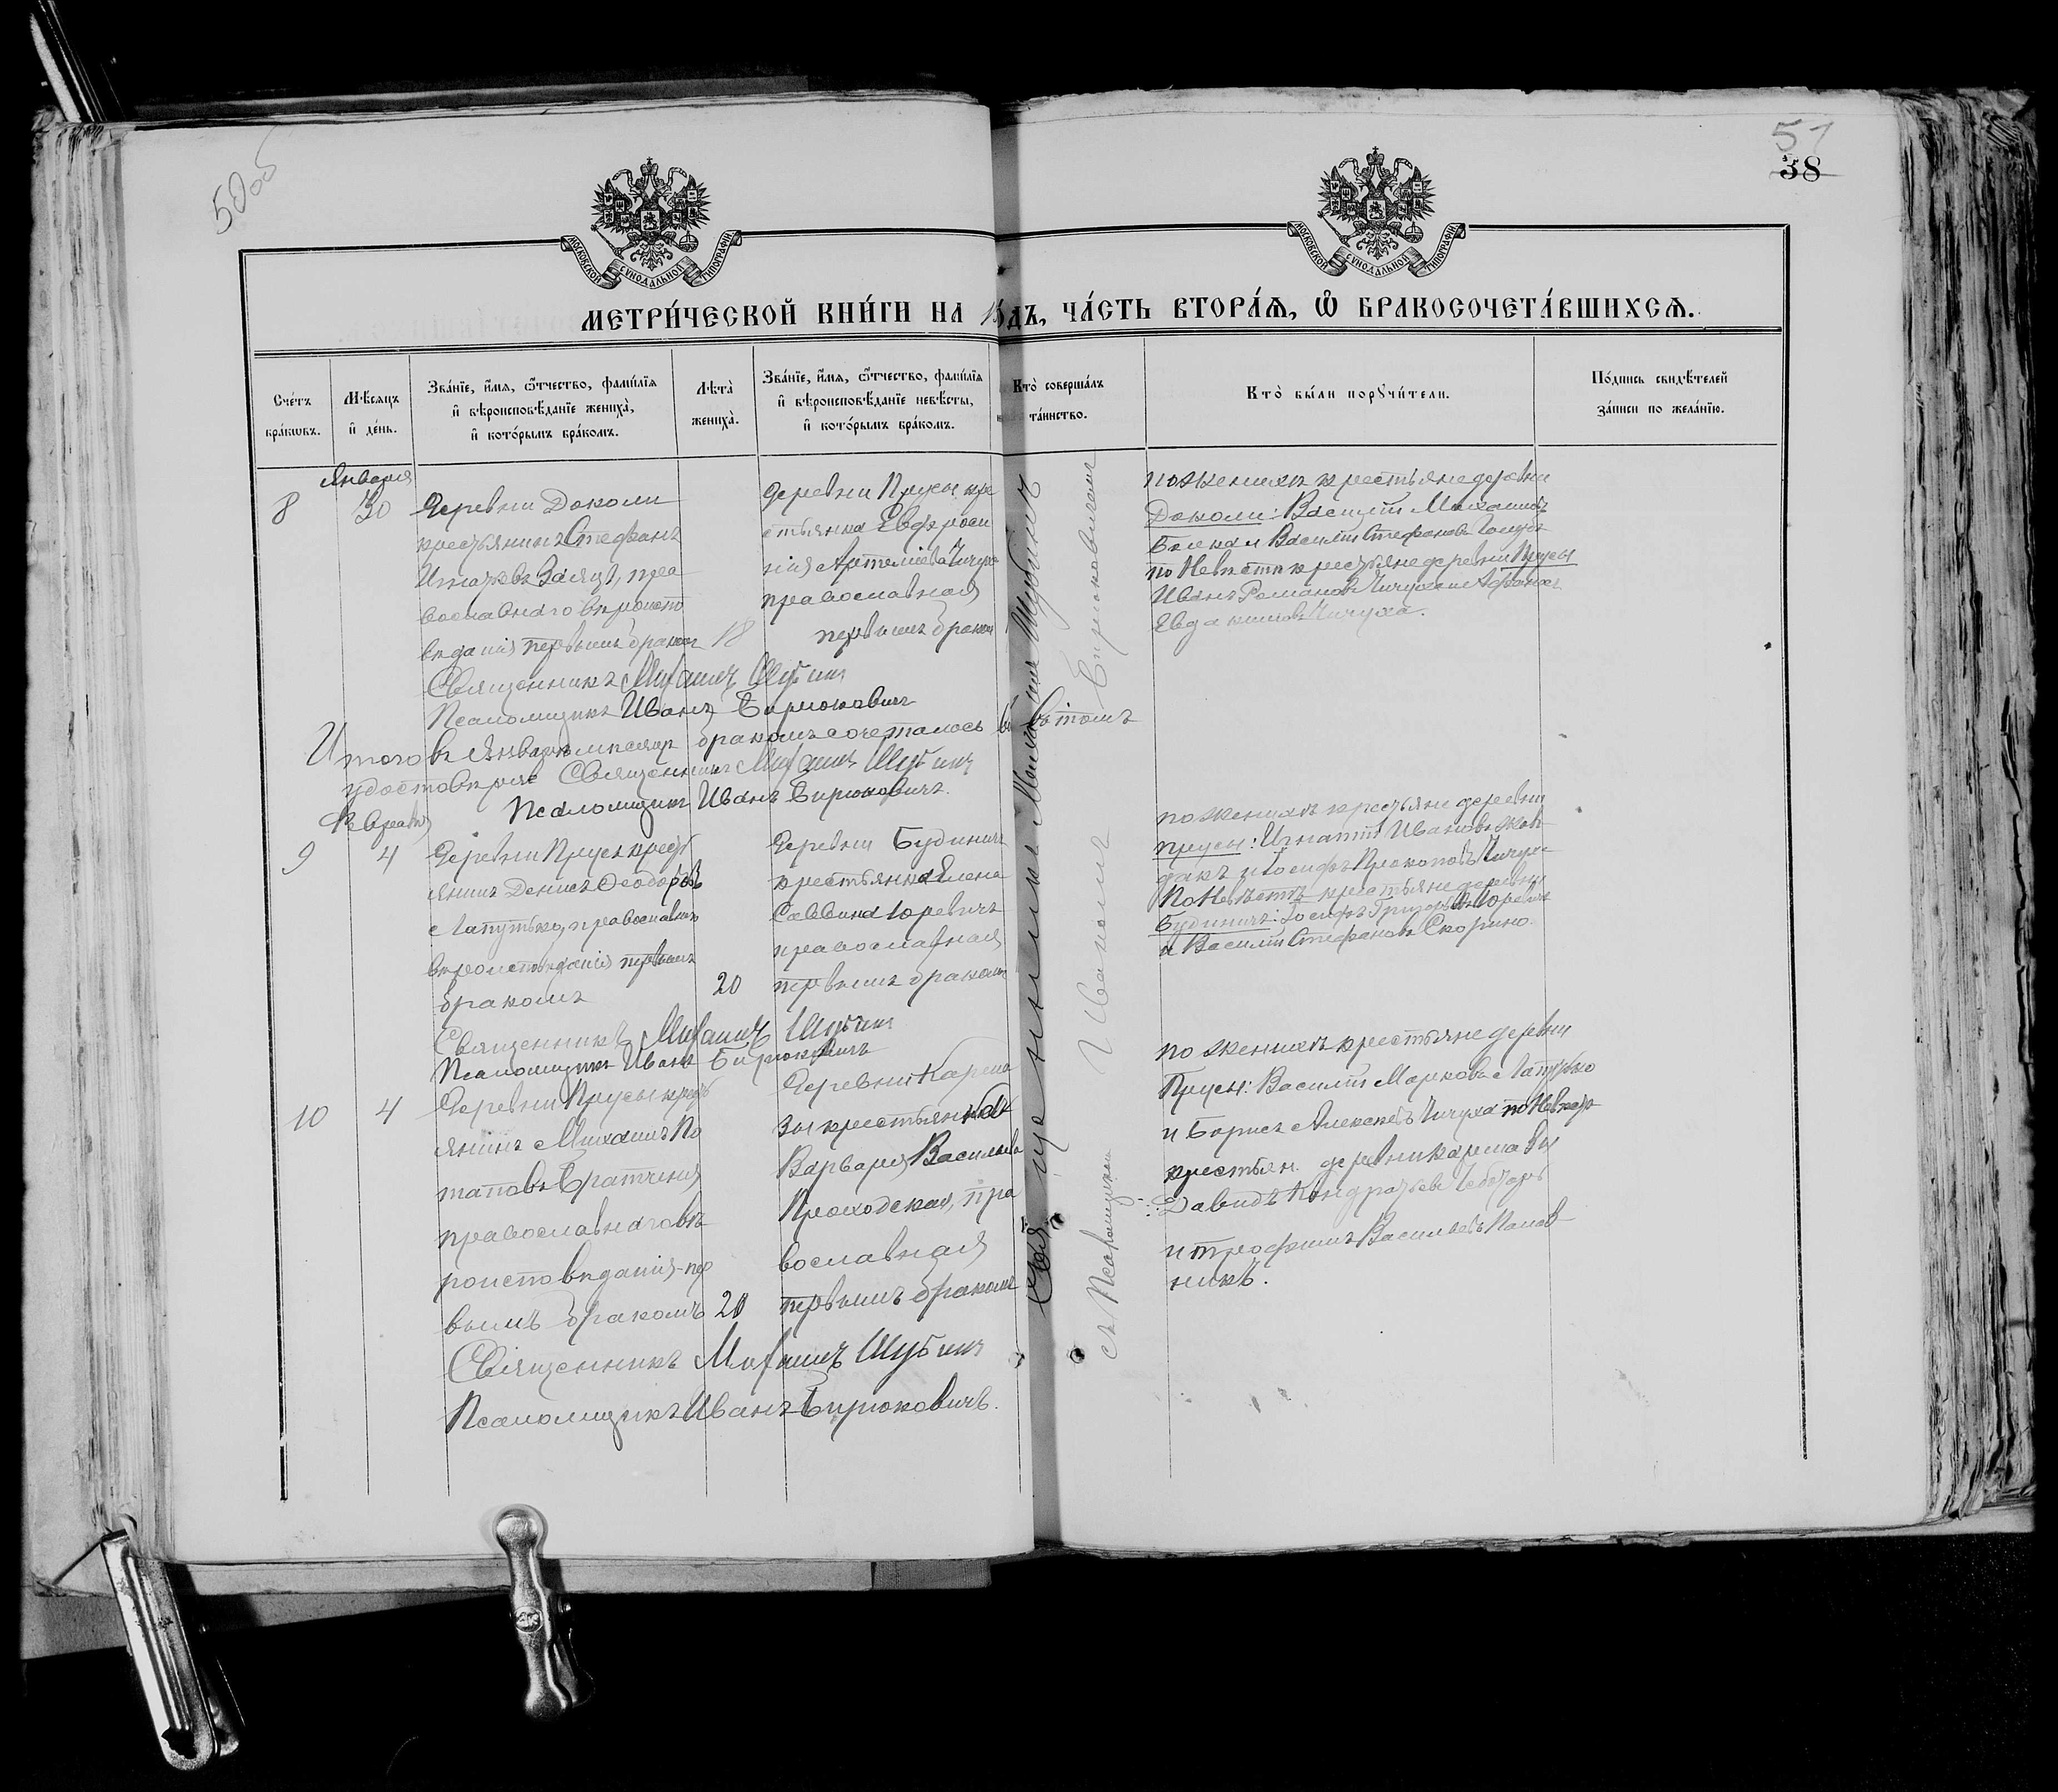 50об
51
38
МОСКОВСКОЙ СУНОДАЛЬНОЙ ТИПОГРАФІИ
МОСКОВСКОЙ СУНОДАЛЬНОЙ ТИПОГРАФІИ
МЕТРИ́ЧЕСКОЙ КНИ́ГИ НА ДЪ, ЧА́СТЬ ВТОРА́Ѧ, Ѽ БРАКОСОЧЕТА́ВШИХСѦ.
Сче́тъ
бра́кѡвъ.
Мѣ́сѧцъ
и҆ де́нь.
Зва́нїе, и҆́мѧ, ѻ҆́тчество, фами́лїѧ
и҆ вѣроисповѣ́данїе жениха̀,
и҆ кото́рымъ бра́комъ.
Лѣта̀
жениха̀.
Зва́нїе, и҆́мѧ, ѻ҆́тчество, фами́лїѧ
и҆ вѣроисповѣ́данїе невѣ́сты,
и҆ кото́рымъ бра́комъ.
Кто̀ соверша́лъ
та́инство.
Кто̀ бы́ли порꙋчи́тели.
По́дпись свидѣ́телей
за́писи по жела́нїю.
Января
8
30
Деревни Доколи
крестьянинъ Стефанъ
Игнатьевъ Заяцъ, пра
вославнаго вѣроиспо
вѣданія первымъ бракомъ
18
Деревни Прусы кре
стьянка Евфроси
нія Артеміева Чичуха
православная
первымъ бракомъ
по женихѣ крестьяне деревни
Доколи: Василій Михаиловъ
и Василій Стефановъ
по Невѣстѣ крестьяне деревни Прусы
Иванъ Романовъ Чичуха и Афонасъ
Евдакимовъ Чичуха.
Священникъ Михаилъ Шубинъ
Псаломщикъ Иванъ Бирюковичъ
Итого въ Январѣ мѣсяцѣ бракомъ сочеталось въ томъ
удостовѣряю Священникъ Михаилъ Шубинъ
Псаломщикъ Иванъ Бирюковичъ.
Февраля
9
4
Деревни Прусы крест
янинъ Денисъ Феодоровъ
Лапутько, православнаго
вѣроисповѣданія первымъ
бракомъ
20
Деревни Будиничъ
крестьянка Елена
Саввина Юревичъ
православная
первымъ бракомъ
по женихѣ крестьяне деревни
Прусы: Игнатій Ивановъ
и Іосифъ Прокоповъ Чичуха
По Невѣстѣ крестьяне деревни
Будиничъ: Іосифъ Григорьевъ Юревичъ
и Василій Стефановъ Скорино.
Священникъ Михаилъ Шубинъ
Псаломщикъ Иванъ Бирюковичъ
10
4
Деревни Прусы крест
янинъ Михаилъ По
таповъ Братченя
православнаго вѣ
роисповѣданія пер
вымъ бракомъ
20
Деревни Карма
зы крестьянка
Варвара Васильева
Проходская, пра
вославная
первымъ бракомъ
по женихѣ крестьяне деревни
Прусы: Василій Марковъ Лапутько
и Борисъ Алексѣевъ Чичуха по Невѣстѣ
крестьян. деревни Кармазы
Давидъ Кондратьевъ Чеботарь
и Трофимъ Васильевъ Палав
никъ.
Священникъ Михаилъ Шубинъ
Псаломщикъ Иванъ Бирюковичъ.
Священникъ Михаилъ Шубинъ
съ Псаломщикомъ Иваномъ Бирюковичемъ